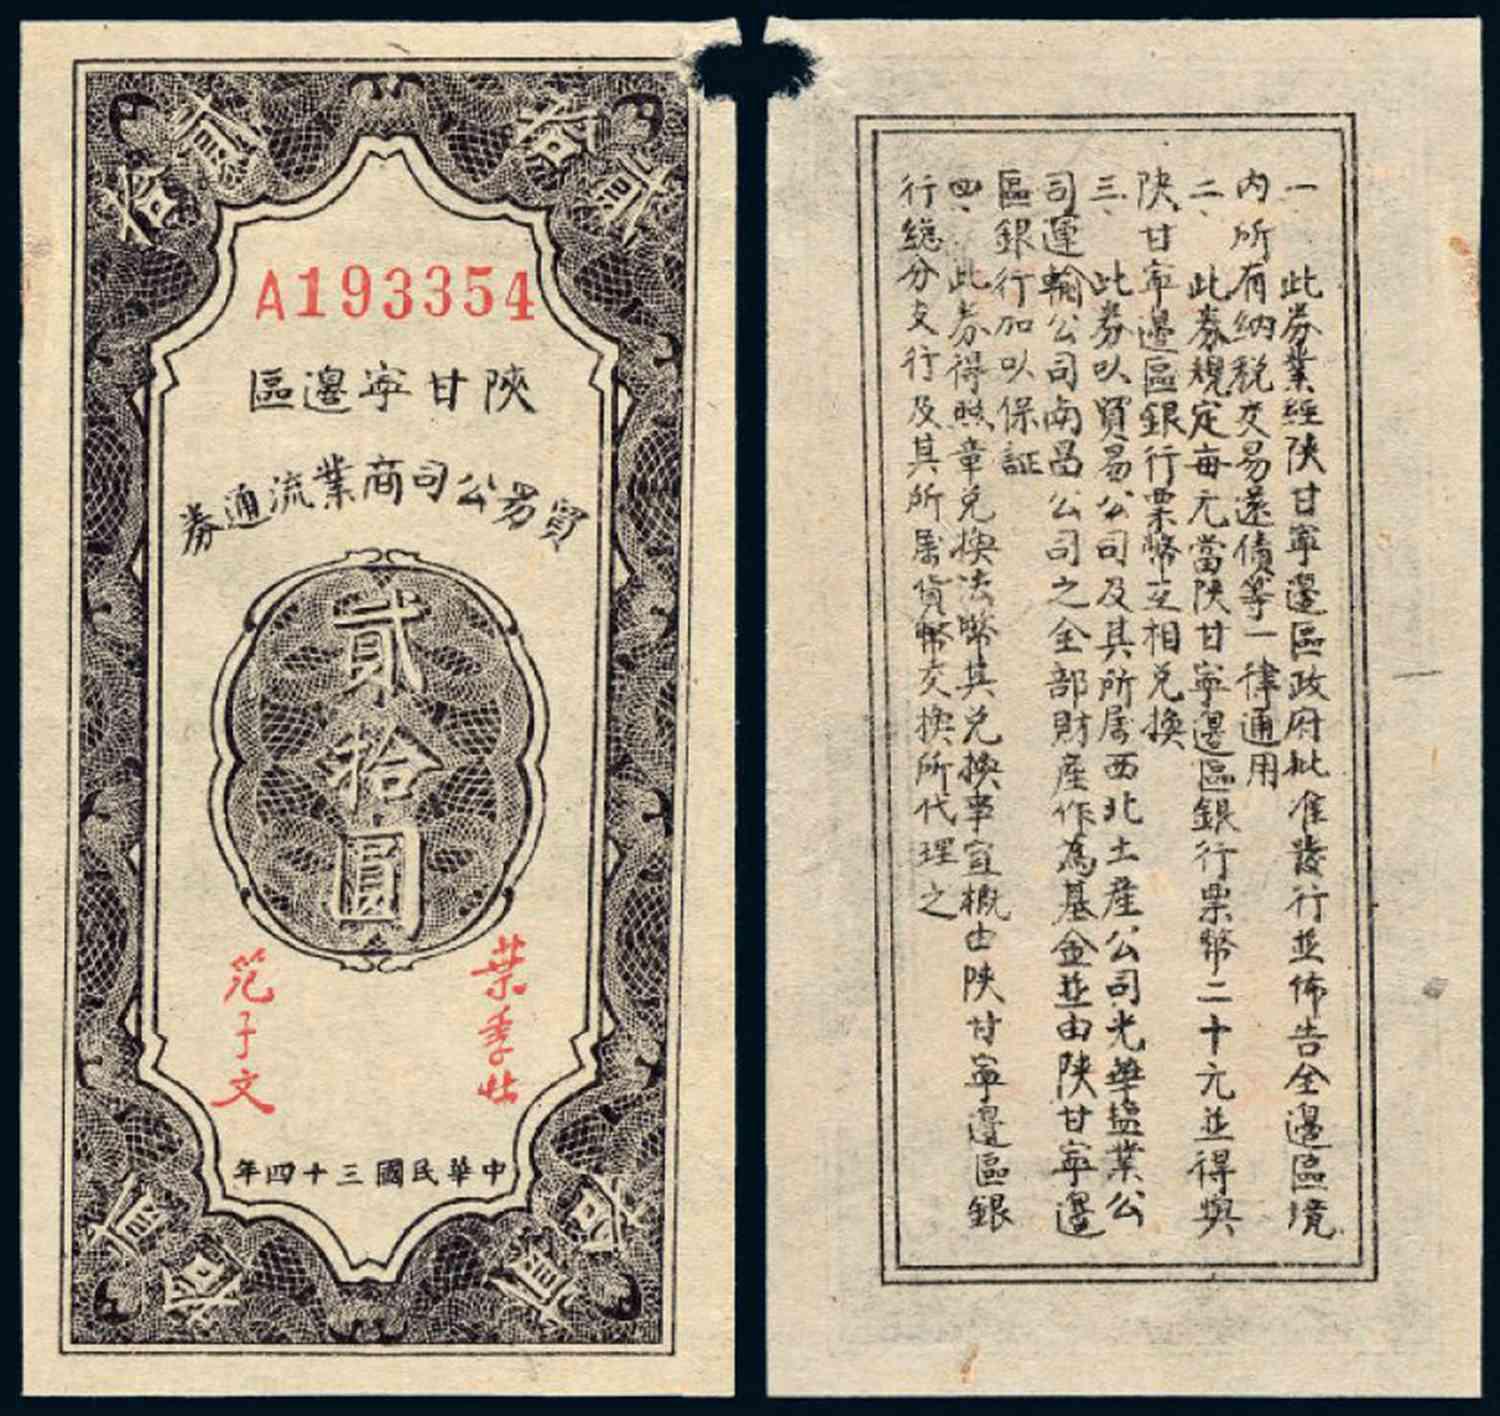 貳拾
貳拾
A193354
陝甘寧邊區
貿易公司商業流通券
貳拾圓
葉季壯
范子文
中華民國三十四年
貳拾
貳拾
一、此券業經陝甘寧邊區政府批准發行並佈告全邊區境
內所有納稅交易還債等一律通用
二、此券規定每元當陝甘寧邊區銀行票幣二十元並得與
陝甘寧邊區銀行票幣互相兌換
三、此券以貿易公司及其所屬西北土產公司光華鹽業公
司運輸公司南昌公司之全部財產作為基金並由陝甘寧邊
區銀行加以保証
四、此券得照章兌換法幣其兌換事宜概由陝甘寧邊區銀
行總分支行及其所屬貨幣交換所代理之